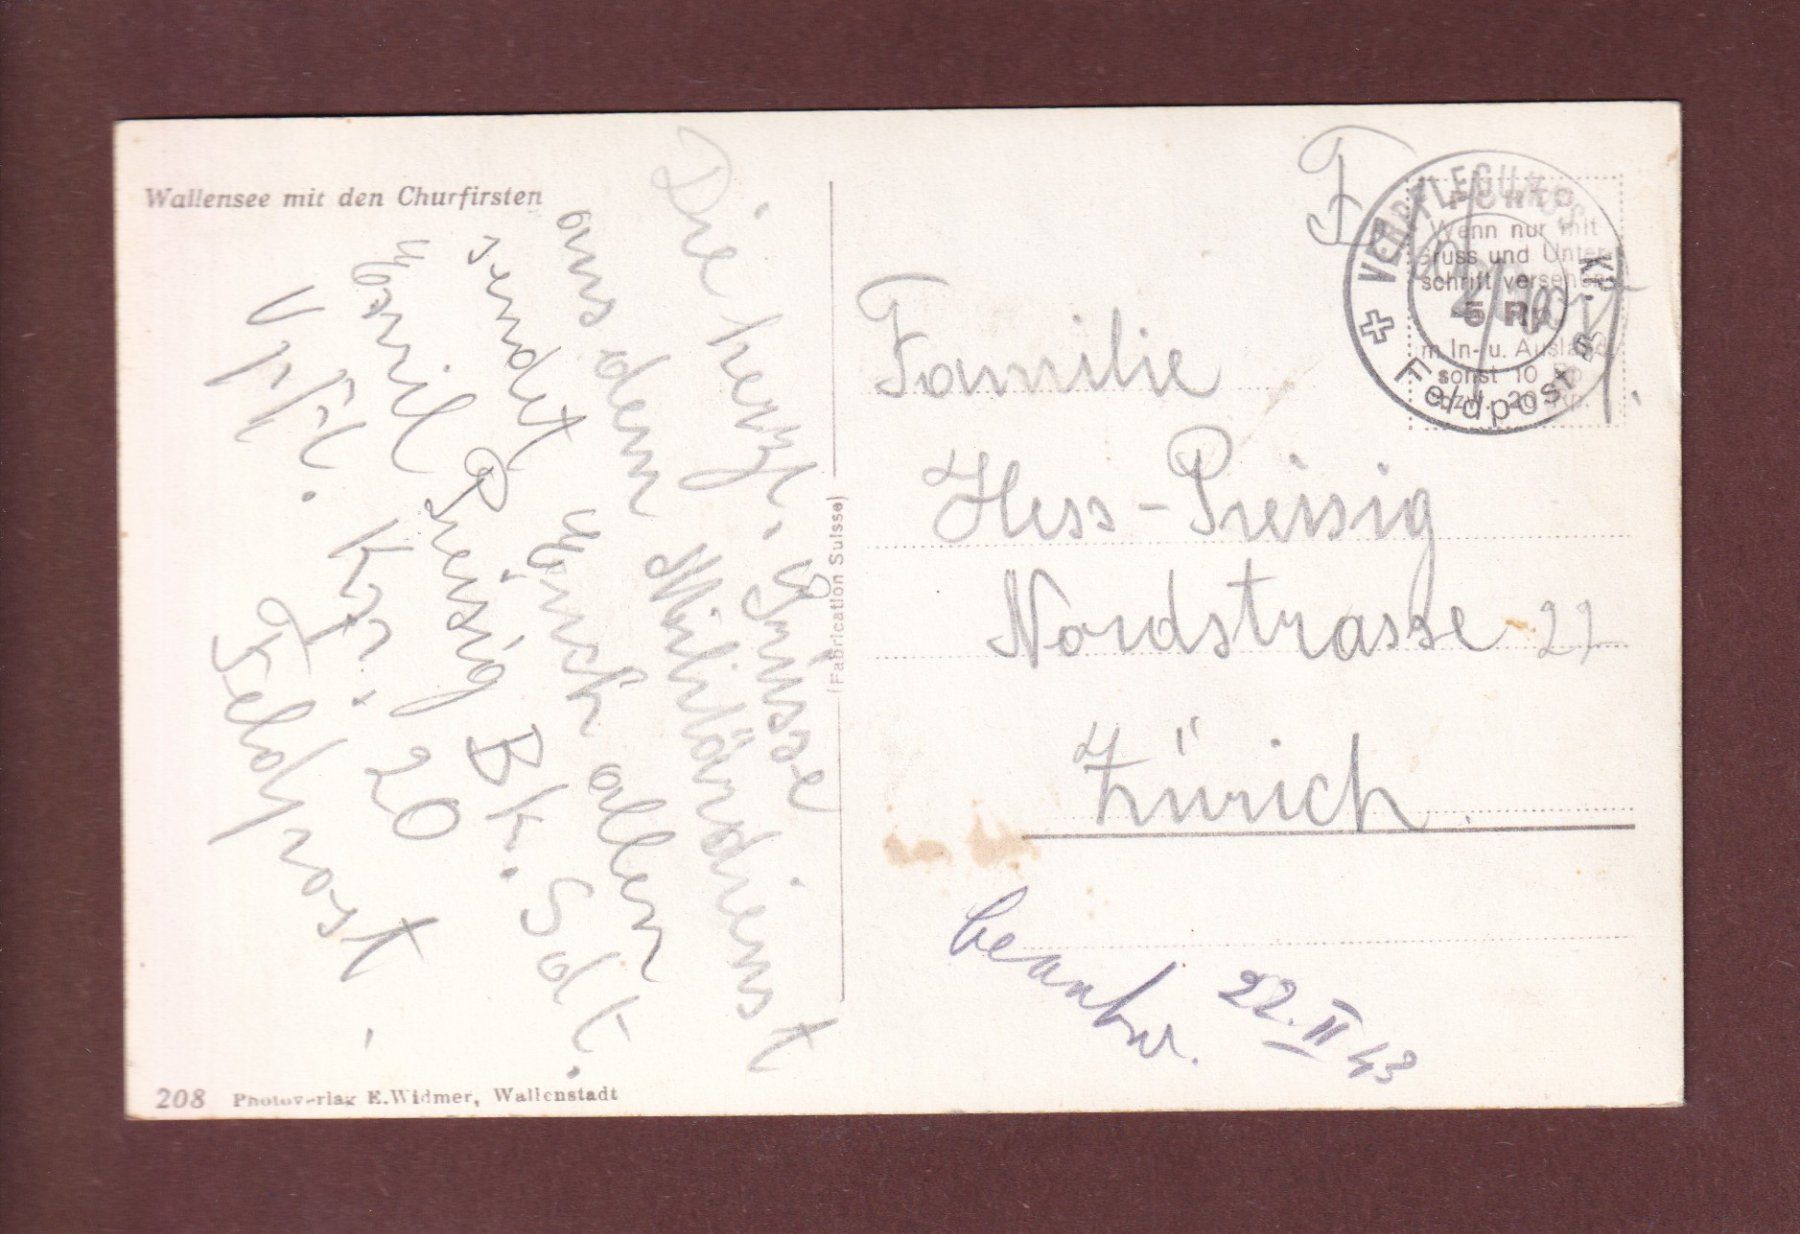 Wallensee mit den Churfirsten
Die herzl. Grüsse
aus dem Militärdienst
sendet Euch allen
Emil Preisig Bk. Sdt.
Vpfl. Kp. 20
Feldpost.
208 Photoverlag E. Widmer, Wallenstadt
(Fabrication Suisse)
VERPFLEGUNGS KP.
Feldpost
PORTO
Wenn nur mit
Gruss und Unter-
schrift versehen
5 Rp
im In- u. Ausland
sonst 10 Rp
bzw. 20 Rp.
Familie
Hess-Preisig
Nordstrasse
Zürich.
beantw. 22. II 43